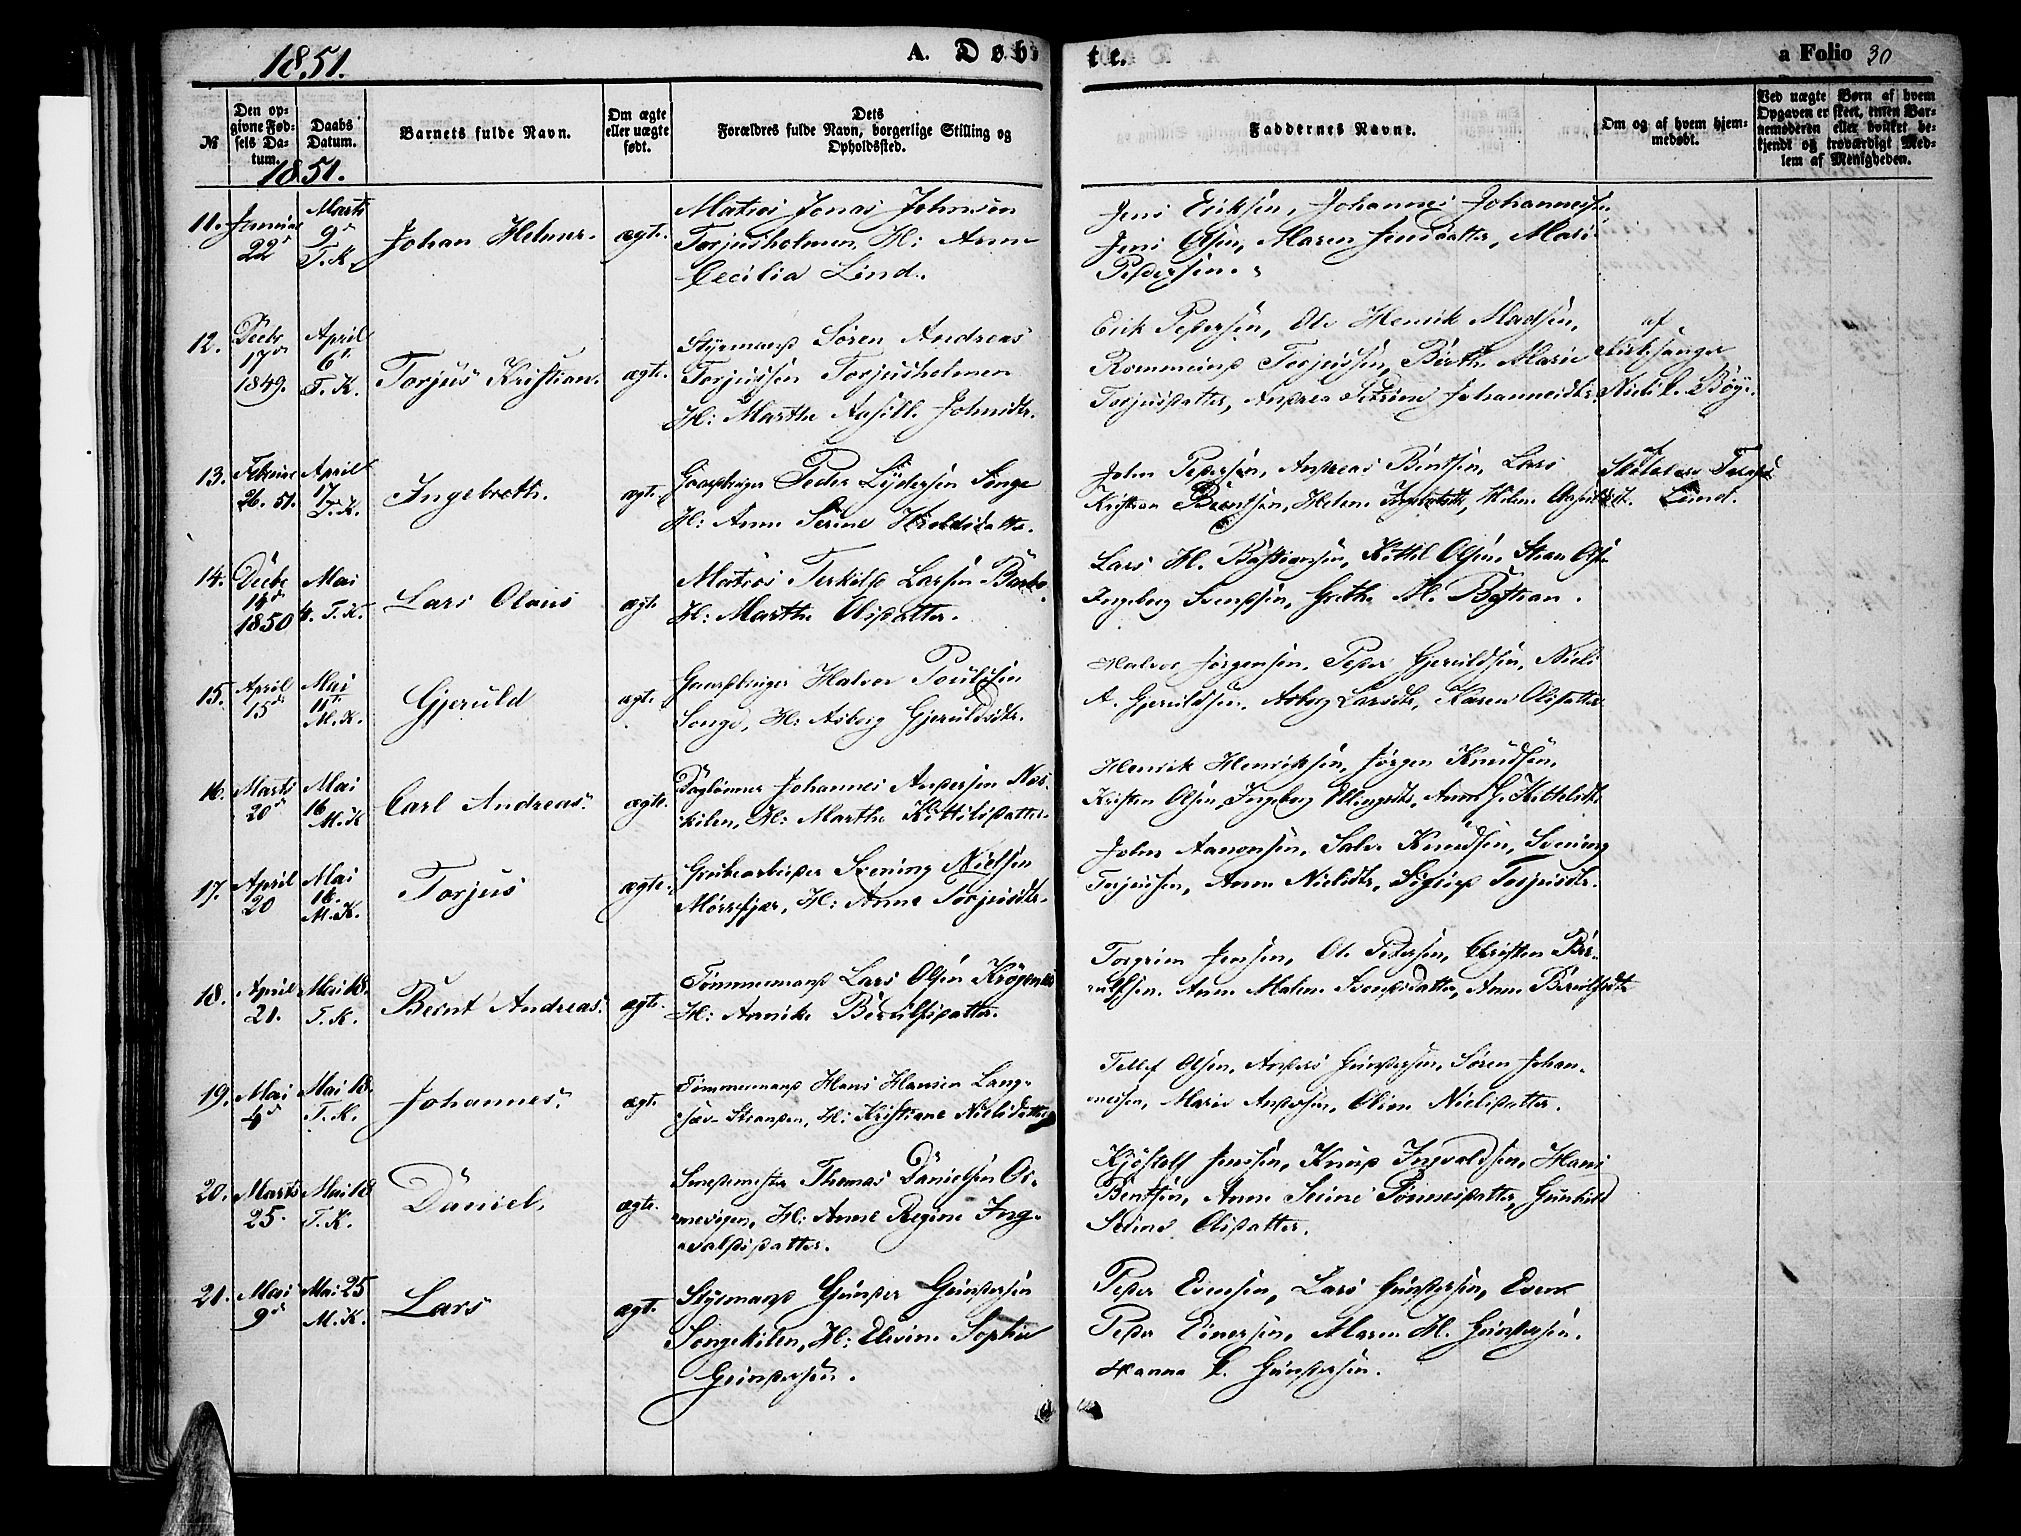 1851.
A. Døb
te.
a Folio 30
№
Den op-
givne Fød-
sels Da-
tum.
Daabs
Datum.
Barnets fulde Navn.
Om ægte
eller uægte
født.
Dets
Forældres fulde Navn, borgerlige Stilling og
Opholdssted.
Faddernes Navne.
Om og af hvem hjem-
medøbt.
Ved uægte Børn af hvem
Opgaven er skeet, enten Bar-
nemoderen eller hvilket be-
kjendt og troværdigt Med-
lem af Menigheden.
1851.
11.
Januar
22d
Marts
9d
T. K.
Johan Helmer.
ægte.
Matros Jonas Johnsen
Torjusholmen, H: Anne
Cecilia Lind.
Jens Eriksen, Johannes Johannessen
Jens Olsen, Maren Jensdatter, Maris
Pedersen.
12.
Decbr
17de
1849.
April
6t
T. K.
Torjus Kristian.
ægte.
Styrmand Søren Andreas
Torjussen Torjusholmen
H: Marthe Johnsdtr.
Erik Pedersen, Ole Henrik Madsen,
Torjussen, Birthe Marie
Torjusdatter, Andrea Johannesdtr.
af
Kirkesanger
Niels Bøye.
13.
Februar
26. 51.
April
17
T. K.
Ingebreth.
ægte
Gaardbruger Peder Songe
H: Anne Serine
John Pedersen, Andreas Bentsen, Lars
Kristian Berntsen, Helene
af
Skolelærer
Lund.
14.
Decbr
14d
1850
Mai
4. T. K.
Lars Olaus
ægte
Matros Terkild Larsen Barbo.
H: Marthe Olsdatter.
Lars H. Bastiansen, Kittil Olsen, Olsen
Ingeborg Svendsen, Grethe M. Bastian.
15.
April
15de
Mai
11te
M. K.
Gjeruld
ægte.
Gaardbruger Halvor Poulsen
Songe, H: Asberg Gjeruldsdtr.
Halvor Jørgensen, Peder Gjeruldsen, Niels
A. Gjeruldsen, Asborg Larsdtr, Karen Olsdatter.
16.
Marts
20d
Mai
16
M. K
Carl Andreas.
ægte.
Daglønner Johannes Andersen Næs-
kilen, H: Marthe Kittilsdatter.
Henrik Henriksen, Jørgen Knudsen,
Kristen Olsen, Ingeborg Ellingsdtr, Anne J. Kittelsdtr
17.
April
20
Mai
16.
M. K.
Torjus
ægte.
Grubearbeider Svening Nielsen
Mørefjær, H: Anne Torjusdtr.
John Aanonsen, Salve Knudsen, Svening
Torjussen, Anne Nielsdtr, Sigrid Torjusdtr.
18.
April
21.
Mai 18.
T. K.
Bernt Andreas.
ægte.
Tømmermand Lars Olsen Krøgenes
H: Annike Berulfsdatter.
Torgrim Jensen, Ole Pedersen, Christen Ber-
ulfsen. Anne Malene Svendsdatter, Anne Berulfsdtr
19.
Mai
4d
Mai 18.
T. K.
Johannes.
ægte.
Tømmermand Hans Hansen Lang-
sæv Stranden, H: Kristiane Nielsdatter
Tellef Olsen, Anders Gundersen, Søren Johan-
nesen, Marie Andersen, Oline Nielsdatter.
20.
Marts
25.
Mai 18
T. K.
Daniel.
ægte.
Smedemester Thomas Danielsen Os-
mevigen, H: Anne Regine Ing-
valdsdatter.
Kjøstolf Jensen, Knud Ingvaldsen, Hans
Bentsen, Anne Seine Tønnesdatter, Gunhild
Seline Olsdatter.
21.
Mai
9d
Mai 25
M. K.
Lars
ægte.
Styrmand Gunder Gundersen
Songekilen, H: Elvine Sophie
Gundersen.
Peder Evensen, Lars Gundersen, Even
Peder Einersen, Maren H. Gundersen.
Hanna L. Gundersen.